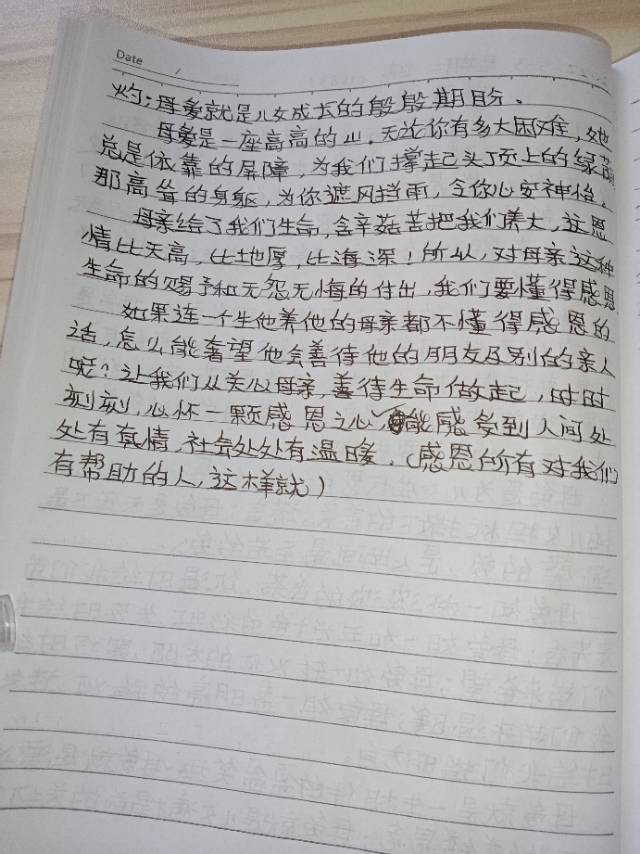 Date /
灼；母爱就是儿女成长的殷殷期盼。
母爱是一座高高的山。无论你有多大困难，她
总是依靠的屏障，为我们撑起头顶上的绿荫
那高耸的身躯，为你遮风挡雨，令你心安神怡。
母亲给了我们生命，含辛茹苦把我们养大，这恩
情比天高，比地厚，比海深！所以，对母亲这种
生命的赐予和无怨无悔的付出，我们要懂得感恩
如果连一个生他养他的母亲都不懂得感恩的
话，怎么能奢望他会善待他的朋友及别的亲人
呢？让我们从关心母亲，善待生命做起，时时
刻刻，心怀一颗感恩之心，能感受到人间处
处有真情，社会处处有温暖。（感恩所有对我们
有帮助的人，这样就）